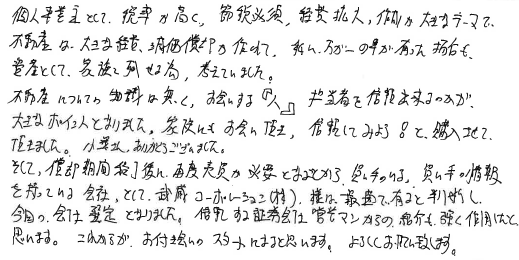 個人事業主として、税率が高く、節税必須、経費拡大、償却が大きなテーマで、
不動産は、大きな経費、減価償却が作れて、私に万が一の事が有った場合も、
資産として、家族に残せる為、考えていました。
不動産についての知識は無く、お会いする『人』 担当者を信頼出来るのかが、
大きなポイントとなりました。家族にもお会い頂き、信頼してみよう!と、購入させて、
頂きました。小 さん、ありがとうございました。
そして、償却期間終了後に、再度売買が必要となることから、買い手のいる、買い手の情報
を持っている会社、として、武蔵コーポレーション(株)様は最適で有ると判断し、
今回の、会社選定となりました。信頼する証券会社営業マンからの、紹介も、強く作用したと
思います。これからが、お付き合いのスタートになると思います。よろしくお願い致します。